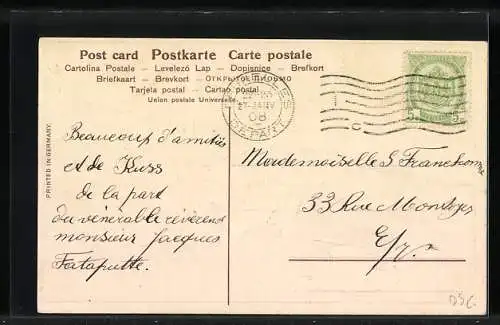 Post card Postkarte Carte postale
Cartolina Postale – Levelező Lap – Dopisnice – Brefkort
Briefkaart – Brevkort – ОТКРЫТОЕ ПИСЬМО
Tarjeta postal – Cartao postal
Union postale Universelle
PRINTED IN GERMANY.
DEPART
08
5 5
Beaucoup d'amitiés
et de Kuss
de la part
du vénérable révérend
monsieur Jacques
Fataputte.
Mademoiselle S
33 Rue Montoyer
E/V.